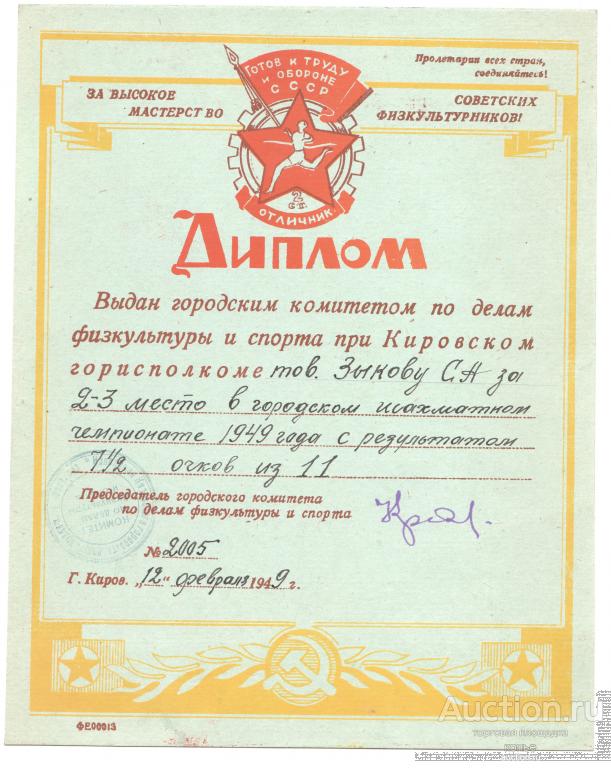 Пролетарии всех стран,
соединяйтесь!
ГОТОВ К ТРУДУ
И ОБОРОНЕ
СССР
ЗА ВЫСОКОЕ
МАСТЕРСТВО
СОВЕТСКИХ
ФИЗКУЛЬТУРНИКОВ!
2 СТ.
ОТЛИЧНИК
ДИПЛОМ
Выдан городским комитетом по делам
физкультуры и спорта при Кировском
горисполкоме тов. Зыкову С А за
2-3 место в городском шахматном
чемпионате 1949 года с результатом
7 1/2 очков из 11
Председатель городского комитета
по делам физкультуры и спорта
КОМИТЕТ
№ 2005
Г. Киров. „12" февраля 1949 г.
ФЕ00013
Auction.ru
торговая площадка